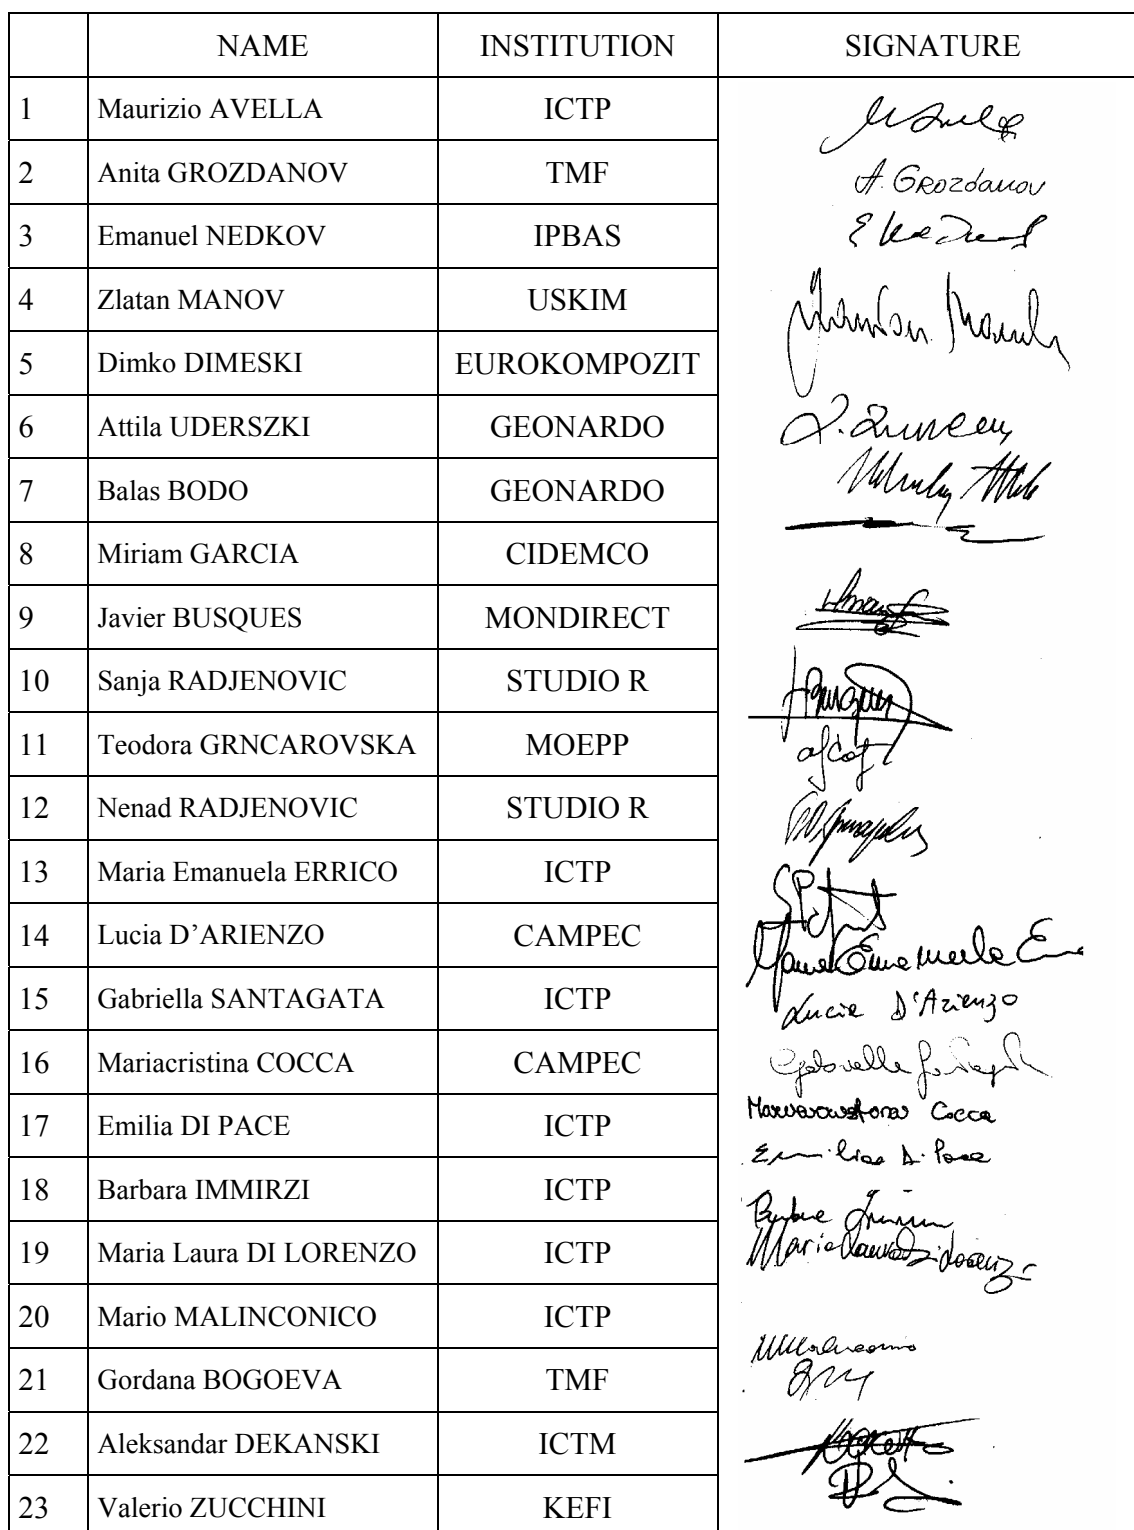 NAME INSTITUTION SIGNATURE
1 Maurizio AVELLA ICTP
2 Anita GROZDANOV TMF A. GROZdanov
3 Emanuel NEDKOV IPBAS
4 Zlatan MANOV USKIM
5 Dimko DIMESKI EUROKOMPOZIT
6 Attila UDERSZKI GEONARDO
7 Balas BODO GEONARDO
8 Miriam GARCIA CIDEMCO
9 Javier BUSQUES MONDIRECT
10 Sanja RADJENOVIC STUDIO R
11 Teodora GRNCAROVSKA MOEPP
12 Nenad RADJENOVIC STUDIO R
13 Maria Emanuela ERRICO ICTP
14 Lucia D’ARIENZO CAMPEC
15 Gabriella SANTAGATA ICTP Lucia D'Arienzo
16 Mariacristina COCCA CAMPEC
17 Emilia DI PACE ICTP Mariacristina Cocca
Emilia Di Pace
18 Barbara IMMIRZI ICTP
19 Maria Laura DI LORENZO ICTP Maria Laura Di Lorenzo
20 Mario MALINCONICO ICTP
21 Gordana BOGOEVA TMF
22 Aleksandar DEKANSKI ICTM
23 Valerio ZUCCHINI KEFI